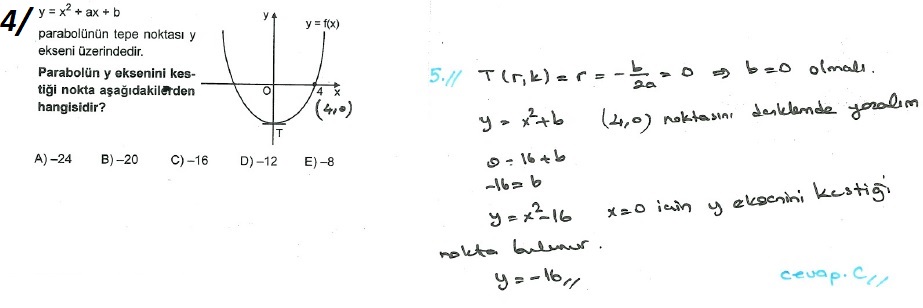 4/ y = x² + ax + b
parabolünün tepe noktası y
ekseni üzerindedir.
Parabolün y eksenini kes-
tiği nokta aşağıdakilerden
hangisidir?
y
y = f(x)
O
4
x
(4,0)
T
A) –24 B) –20 C) –16 D) –12 E) –8
5.// T(r,k) = r = -b/2a = 0 ⇒ b=0 olmalı.
y = x²+b (4,0) noktasını denklemde yazalım
0 = 16+b
-16 = b
y = x²-16 x=0 için y eksenini kestiği
nokta bulunur.
y = -16//
cevap. C//